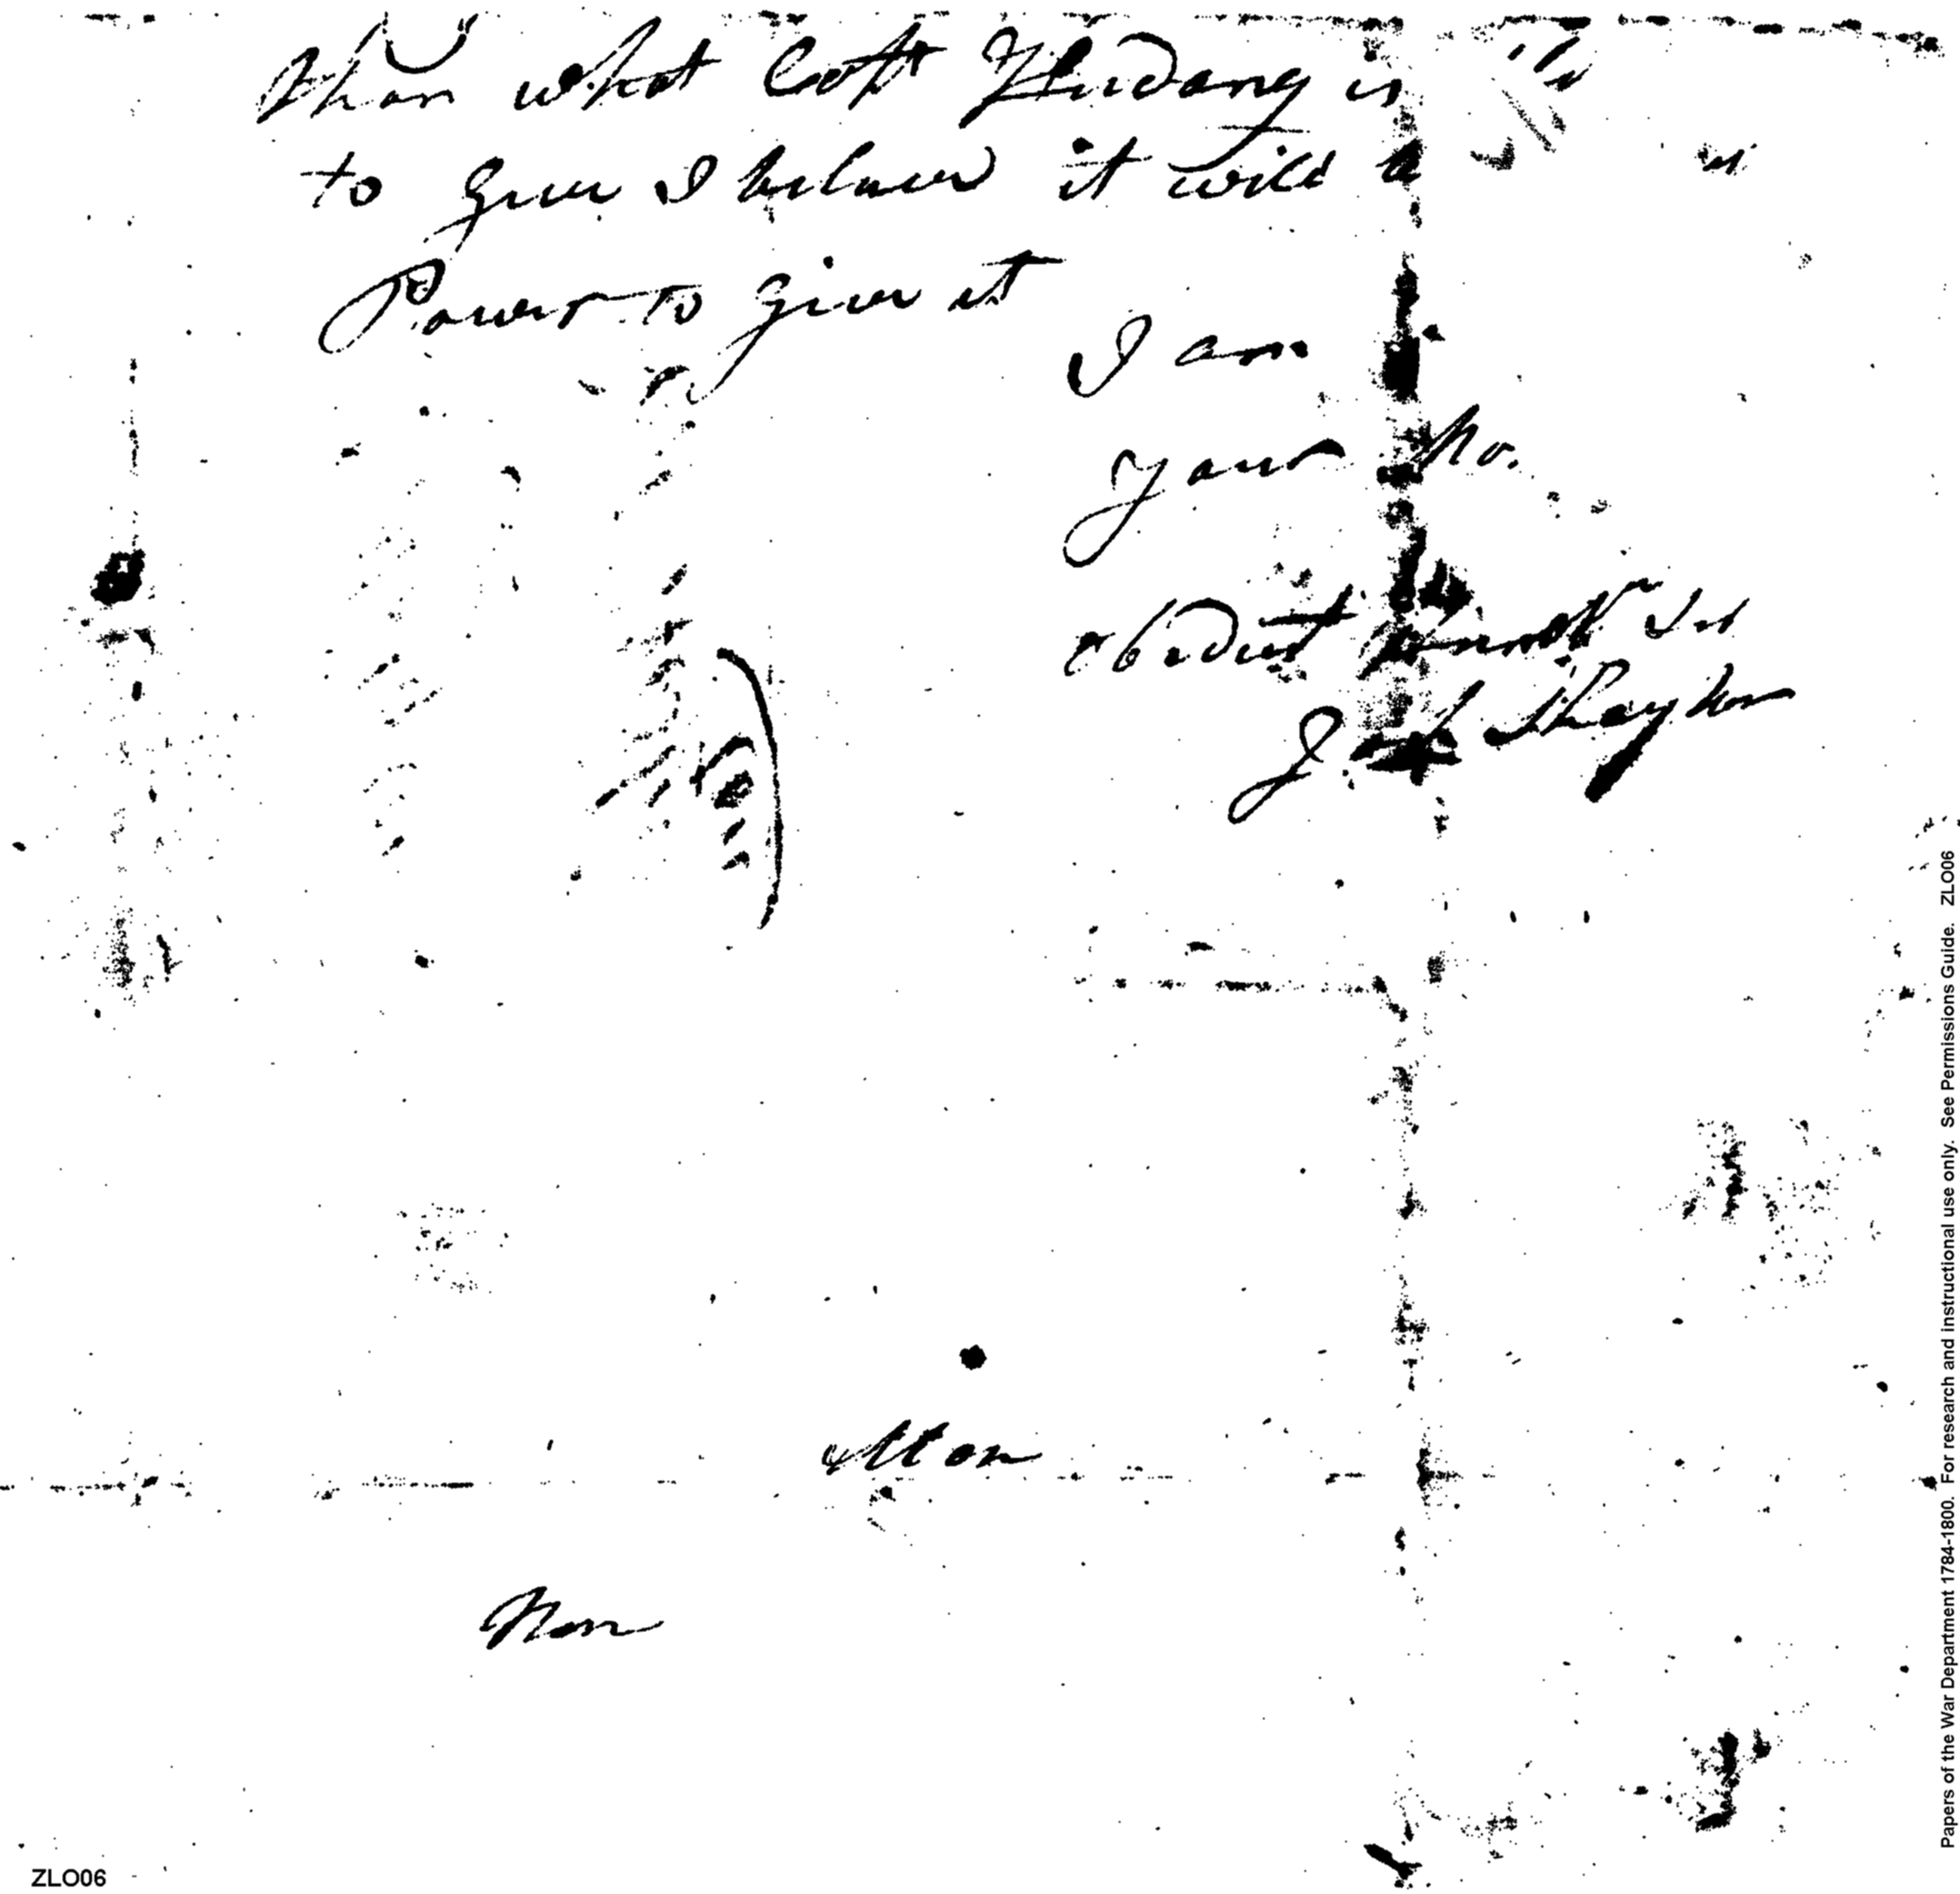 than what Coll Hardang is
to give I beleave it will
Power to give it
I am
your Ho.
obedent
Shaylor
Mon
Mon
Papers of the War Department 1784-1800. For research and instructional use only. See Permissions Guide. ZLO06
ZLO06